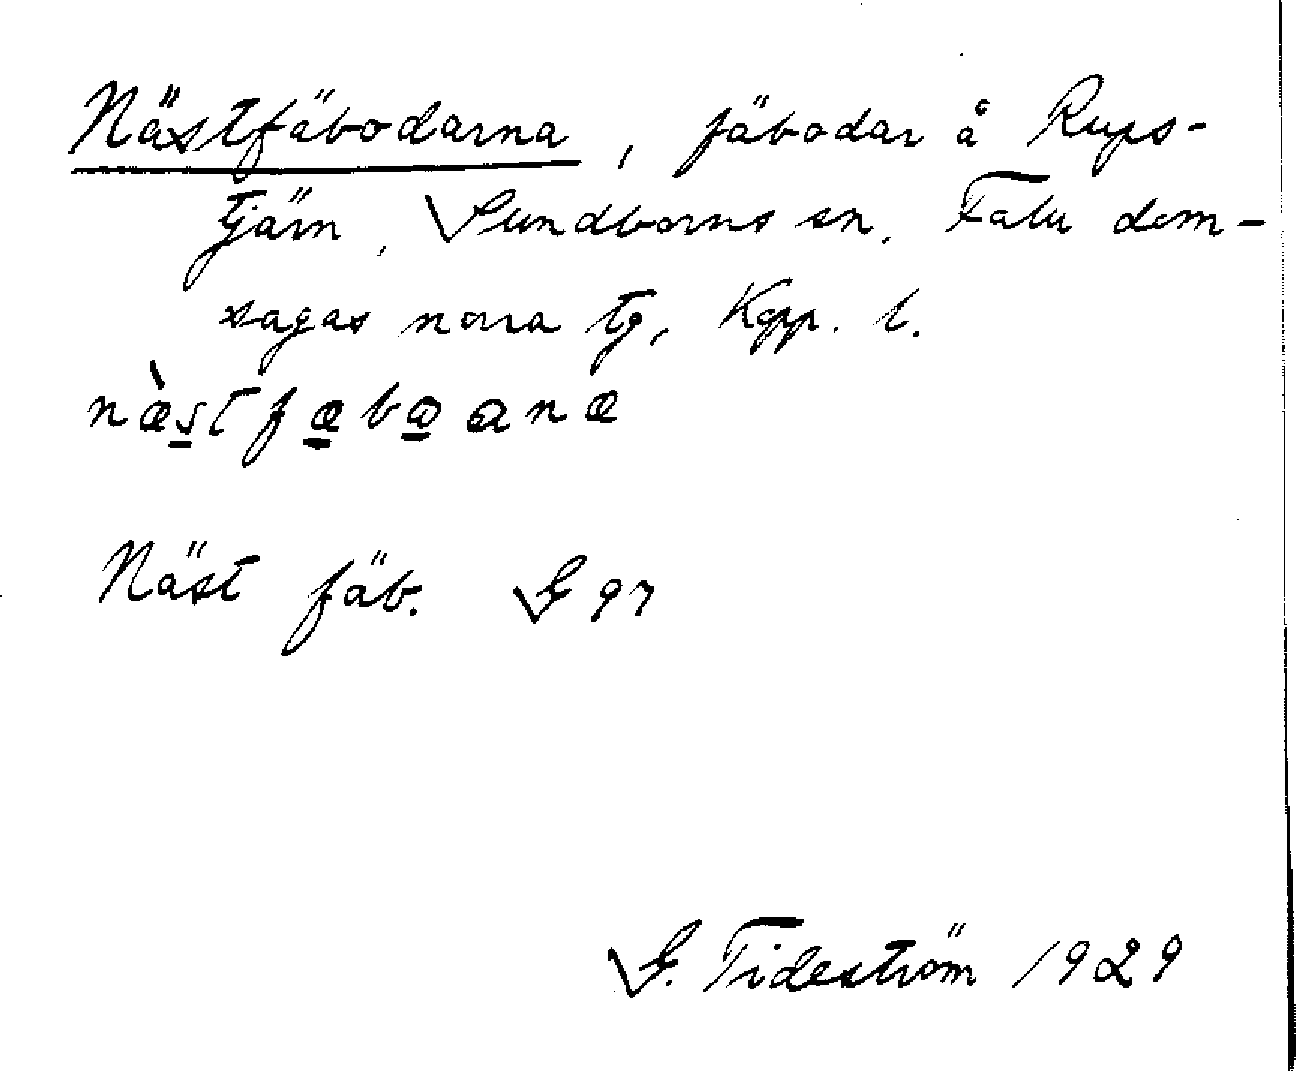 Nästfäbodarna, fäbodar å Rups-
tjärn, Sundborns sn, Falu dom-
sagas norra tg, Kopp. l.
næ̀stfæbωɑnα
Näst fäb. G 97
G. Tideström 1929